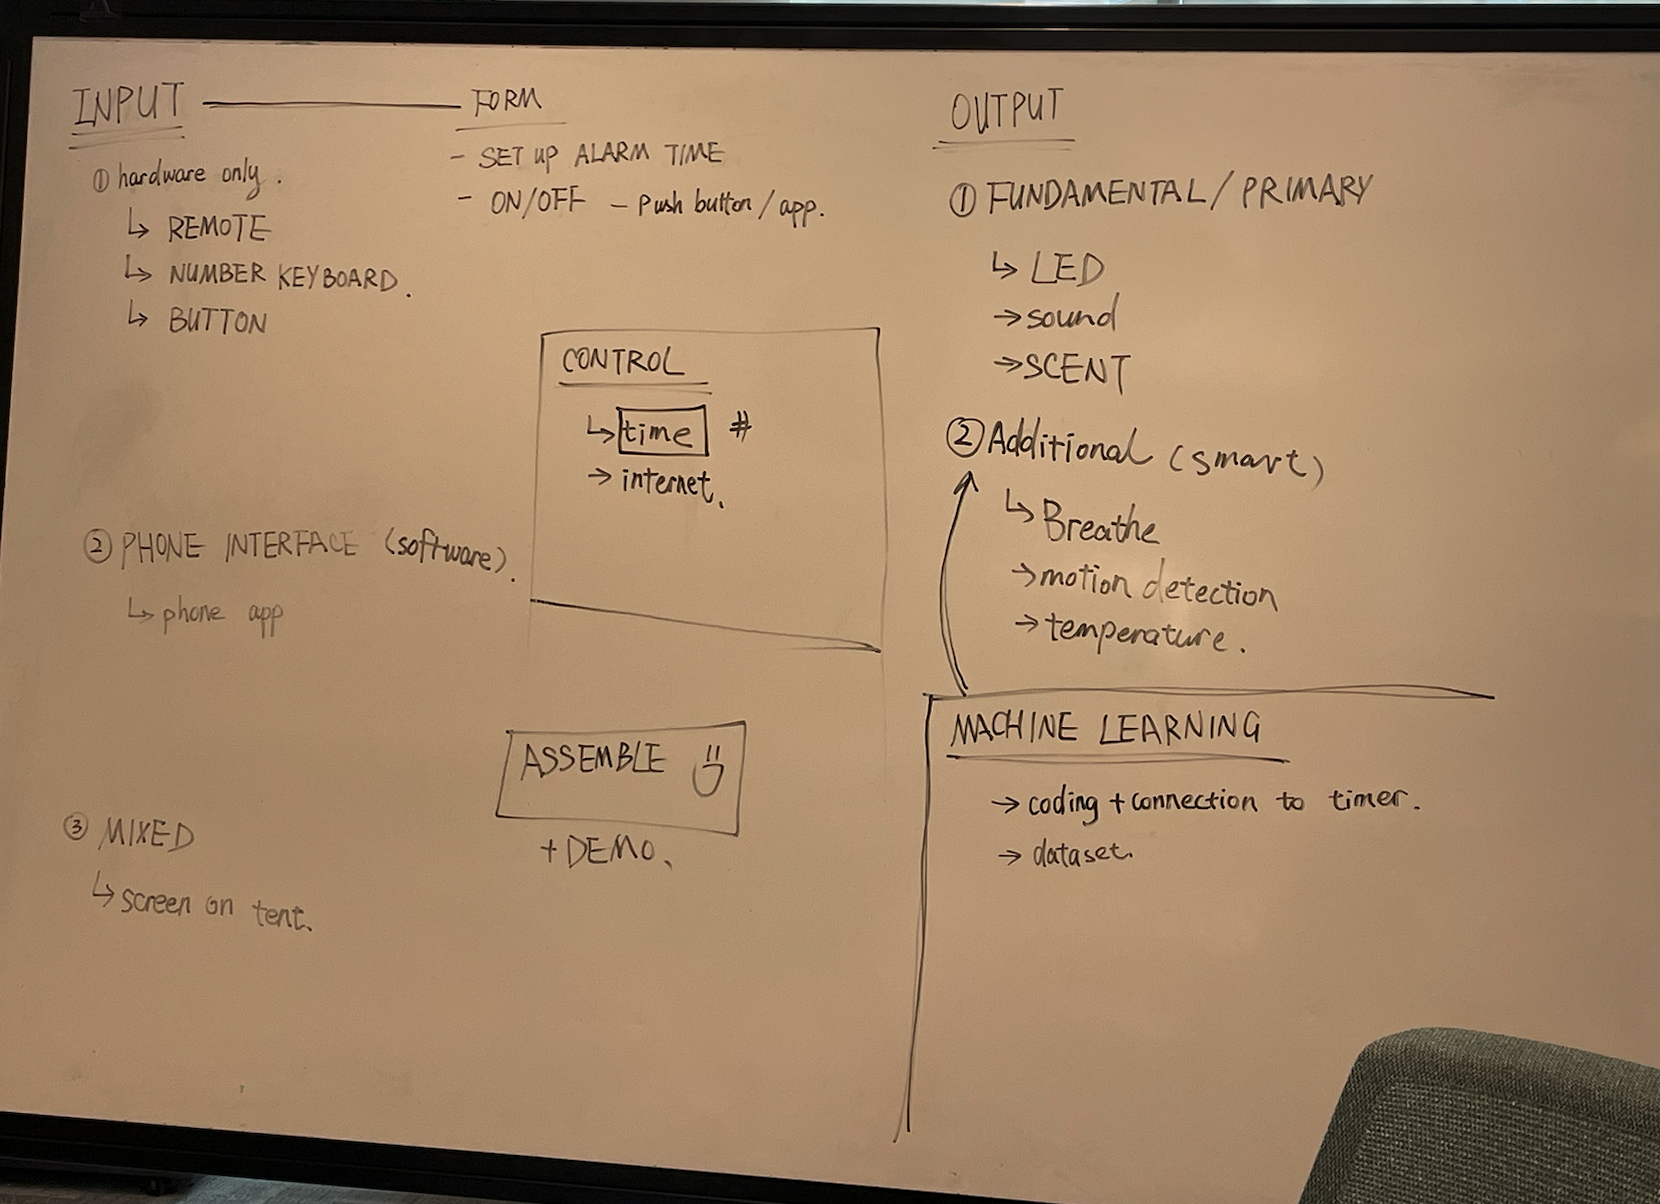 INPUT
① hardware only.
↳ REMOTE
↳ NUMBER KEYBOARD.
↳ BUTTON
② PHONE INTERFACE (software).
↳ phone app
③ MIXED
↳ screen on tent.
FORM
- SET UP ALARM TIME
- ON/OFF - Push button/app.
CONTROL
↳ time #
→ internet.
ASSEMBLE
+ DEMO.
OUTPUT
① FUNDAMENTAL/PRIMARY
↳ LED
→ sound
→ SCENT
② Additional (smart)
↳ Breathe
→ motion detection
→ temperature.
MACHINE LEARNING
→ coding + connection to timer.
→ dataset.